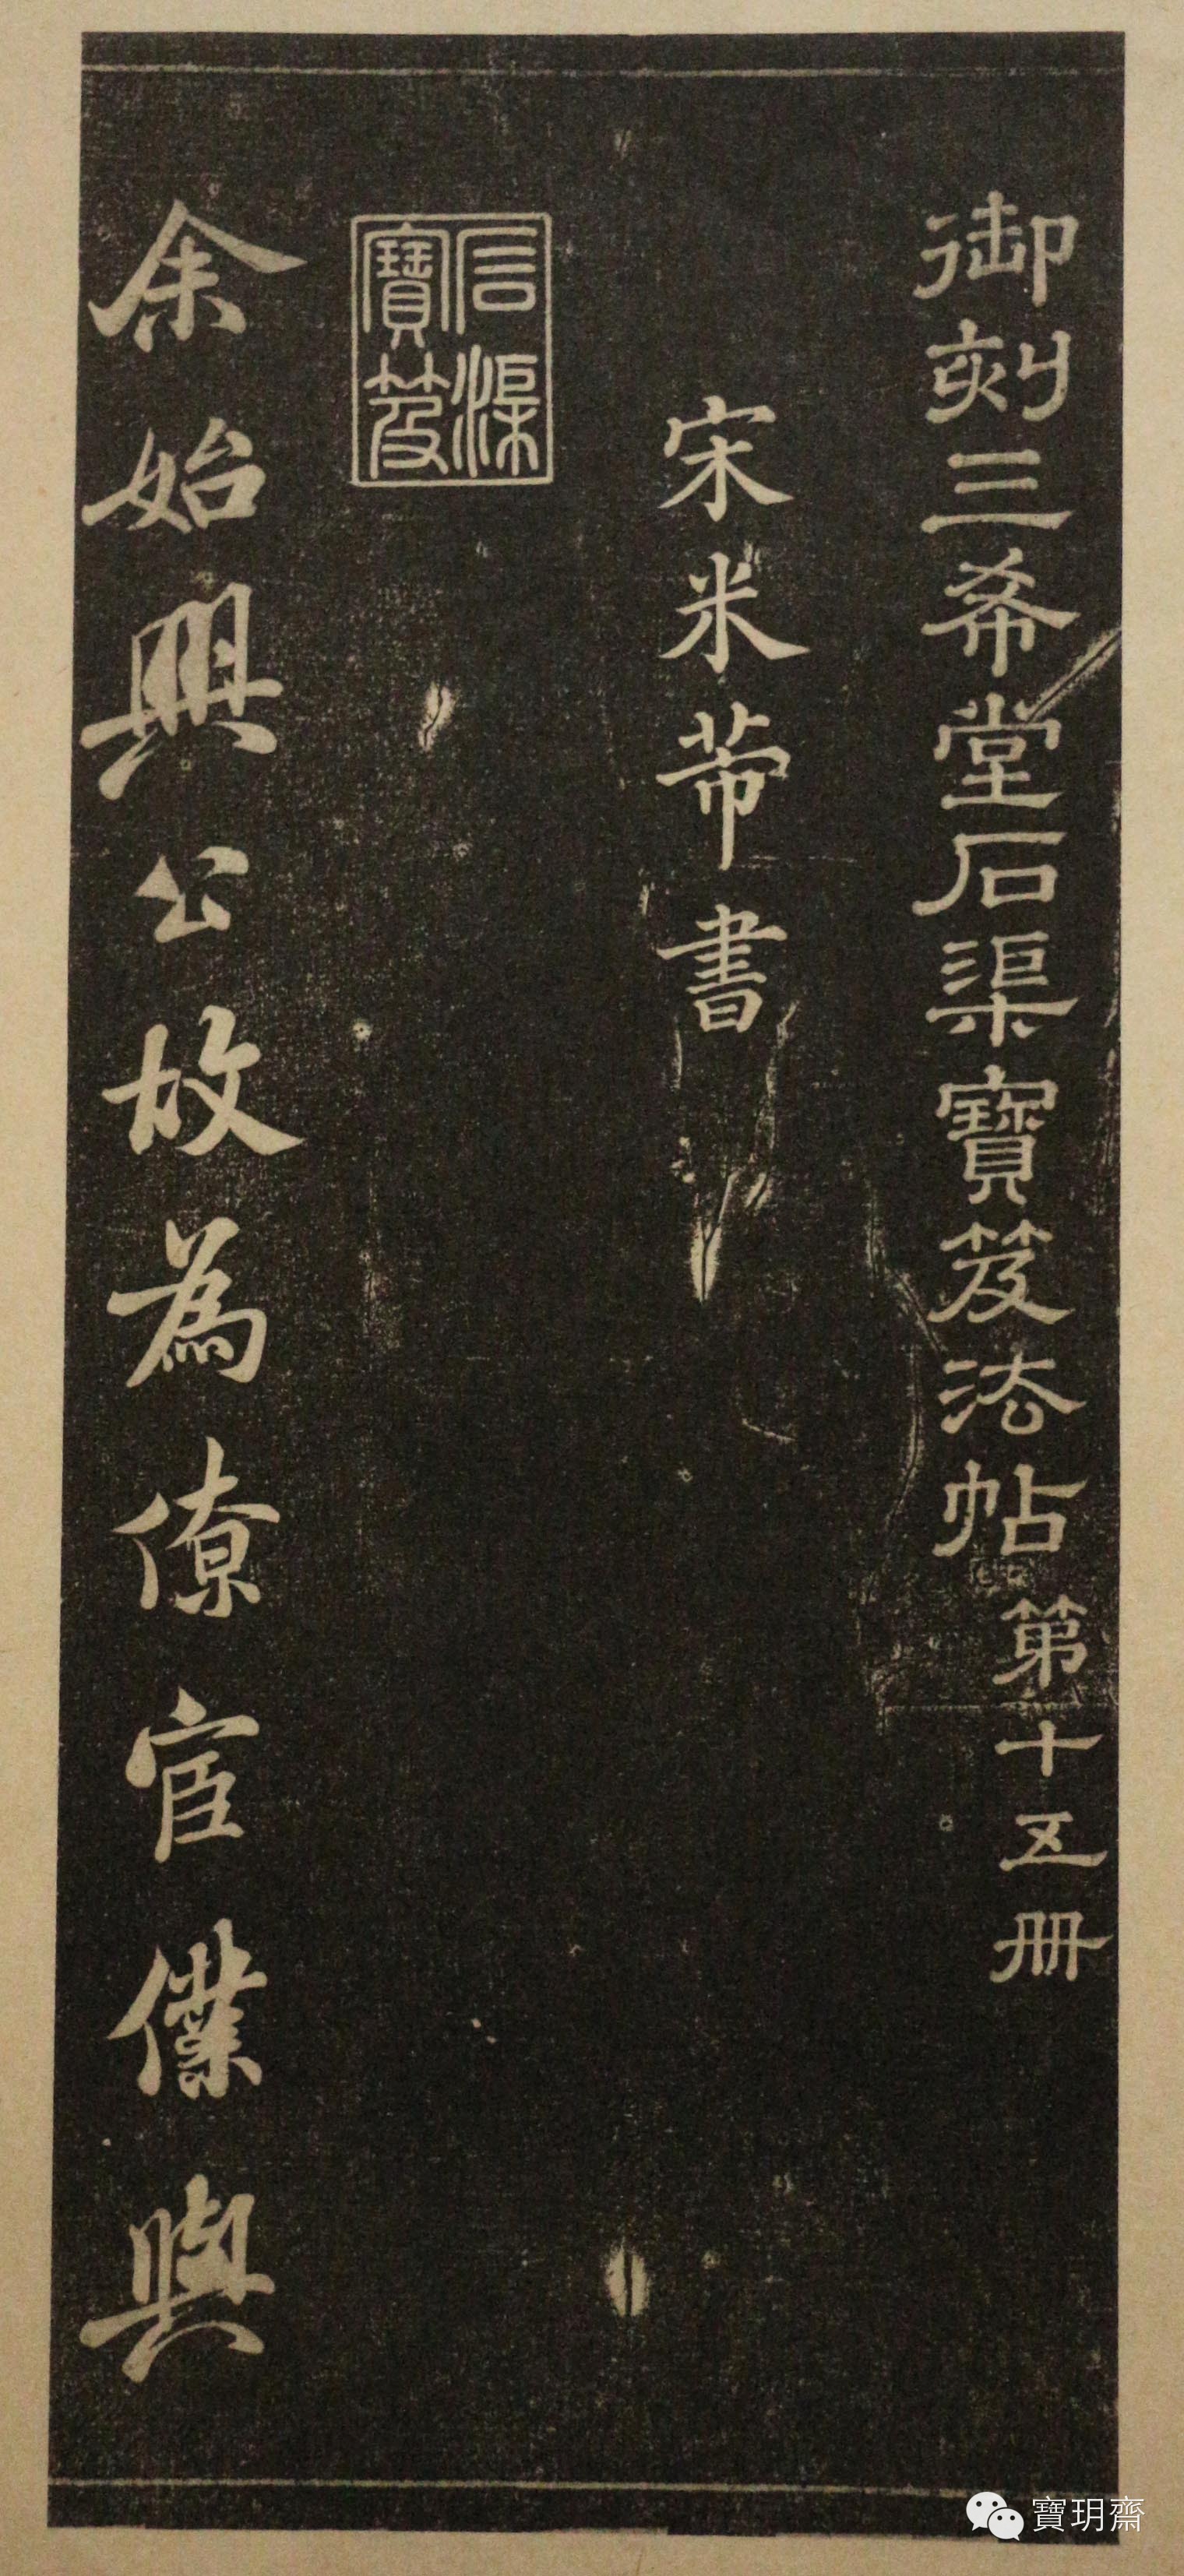 御刻三希堂石渠寶笈法帖第十五册
宋米芾書
石渠
寶笈
余始興公故為僚宦僕與
寶玥齋